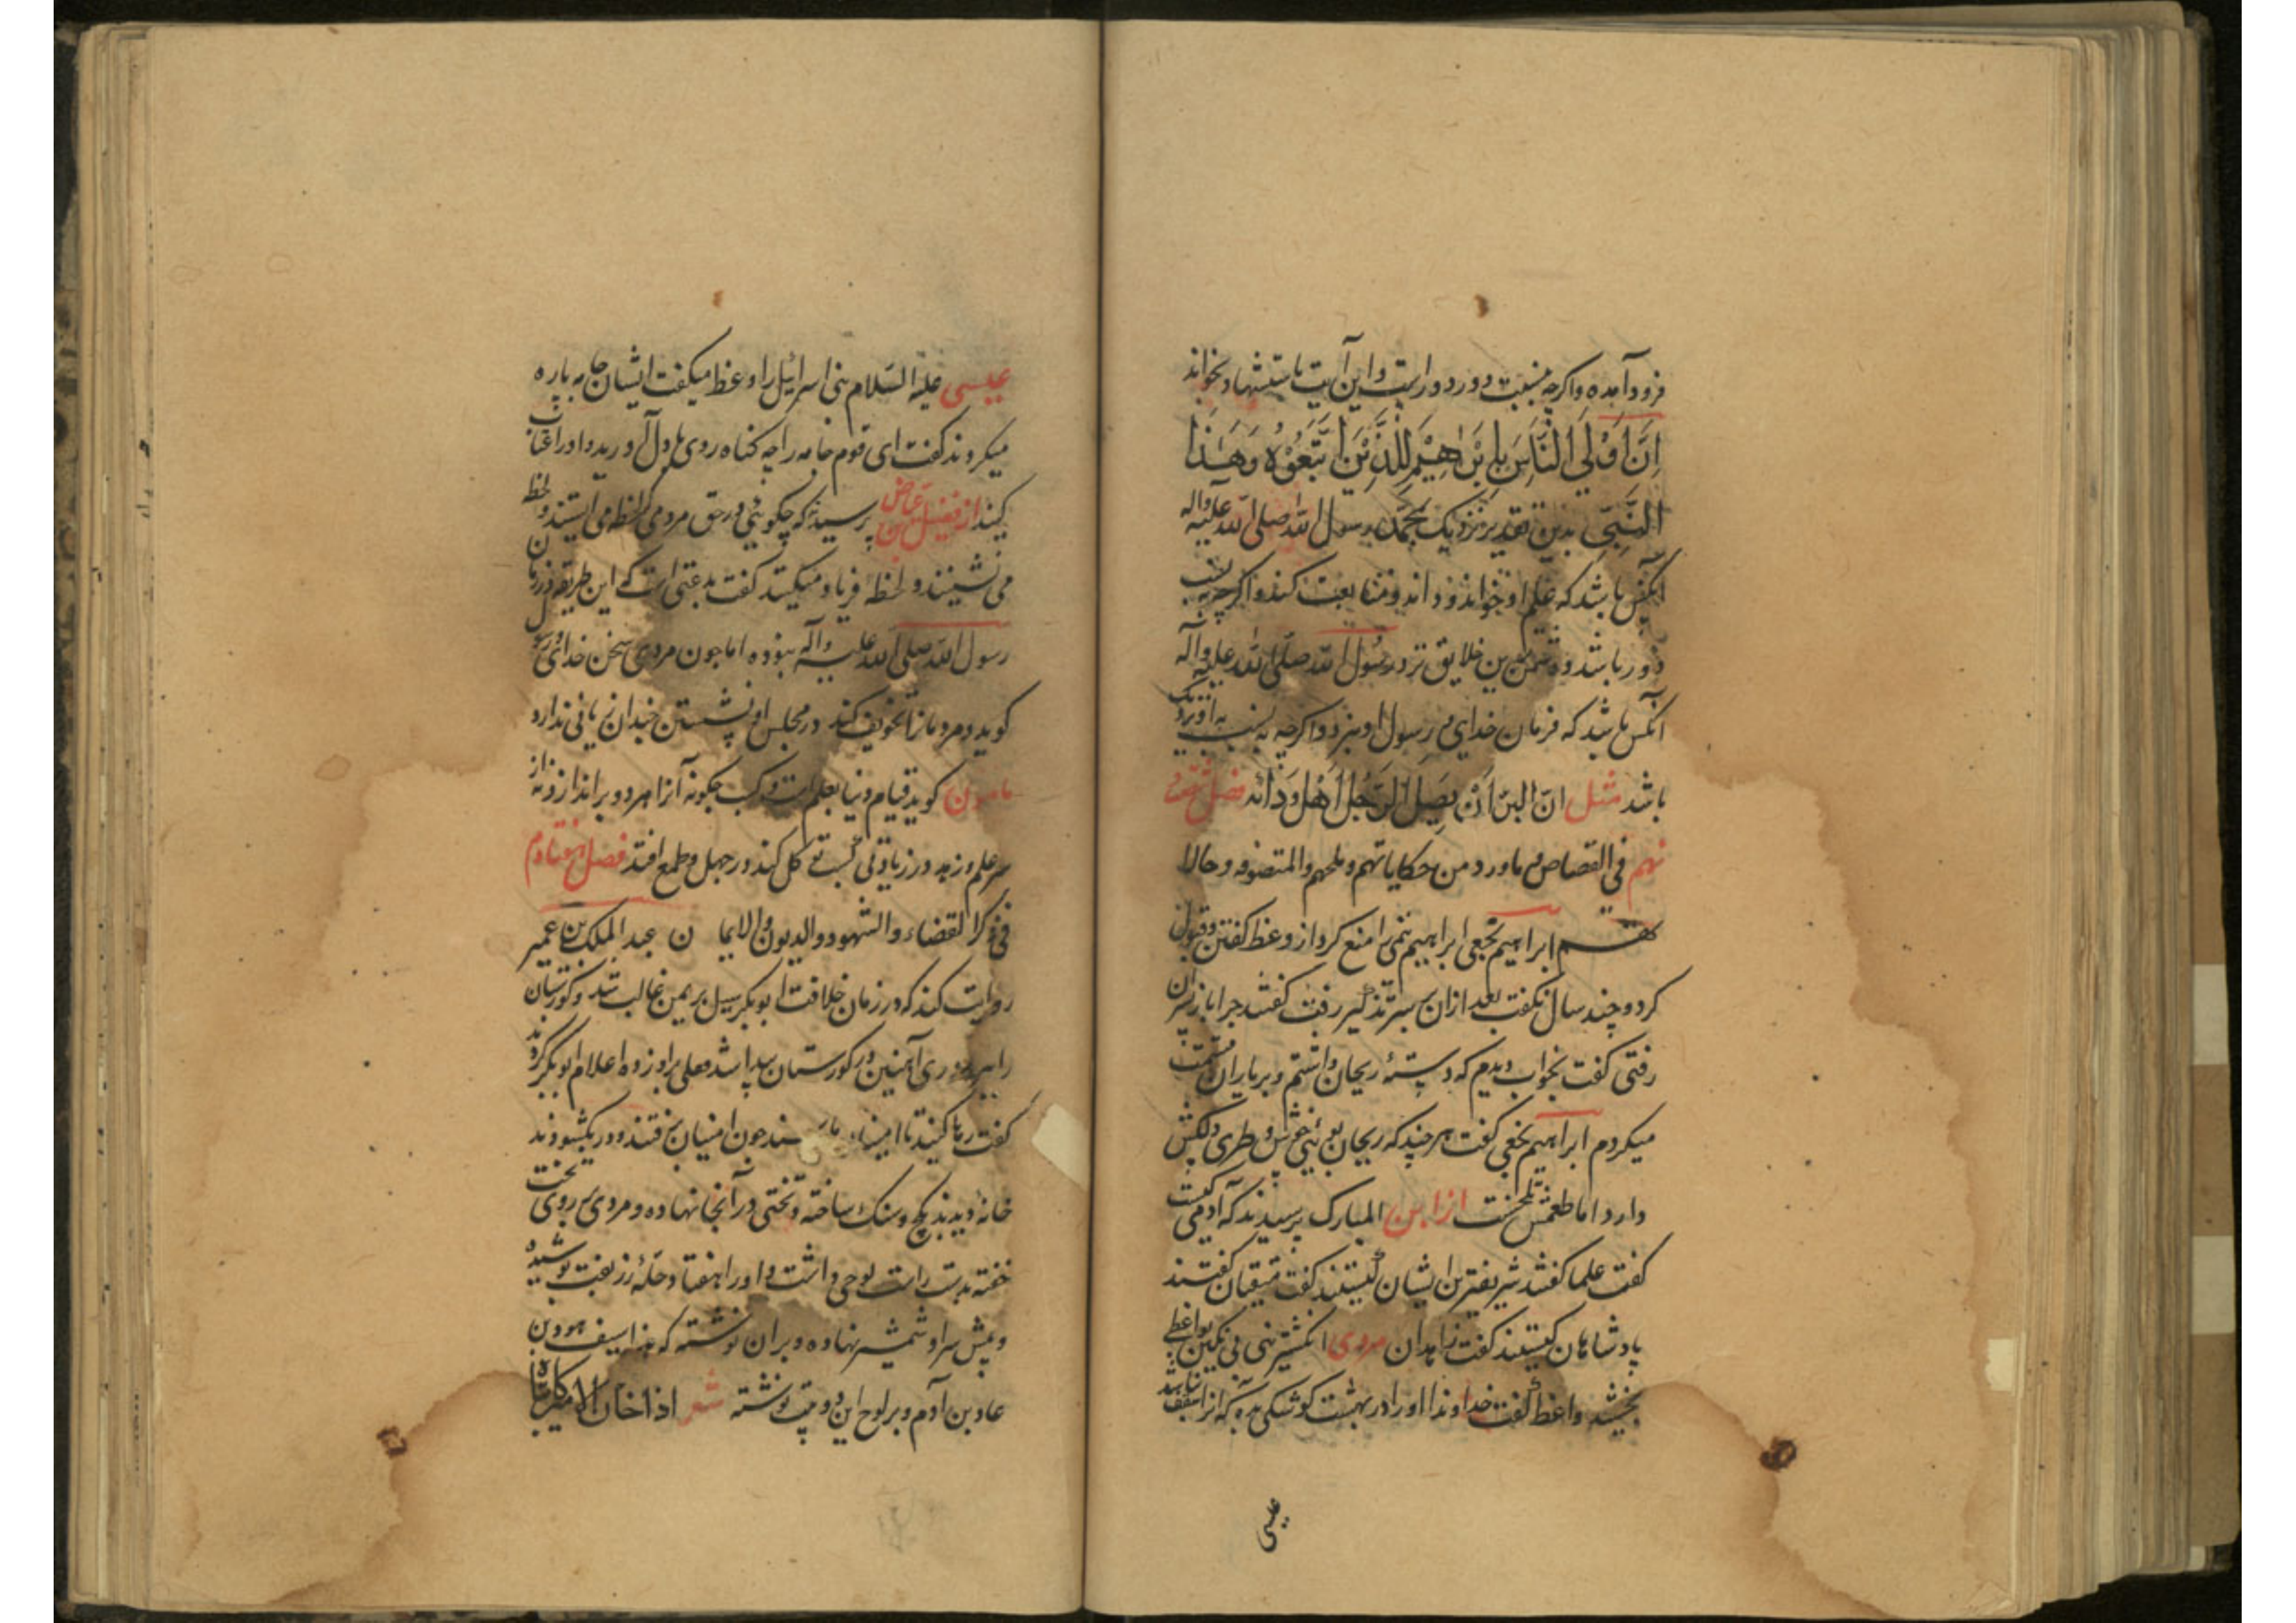 فرود آمده و اگرچه بنسبت دور دور است و این آیت باستشهاد بخواند
اِنَّ اَوْلَی النَّاسِ بِاِبْرٰهِیْمَ لَلَّذِیْنَ اتَّبَعُوْهُ وَهٰذَا
النَّبِیُّ بدین تقدیر نزدیک بمحمد رسول الله صلی الله علیه واله
آنکس باشد که علم او خواند و داند و متابعت کند و اگرچه بنسب
دور باشد و دشمن‌ترین خلایق نزد رسول الله صلی الله علیه وآله
آنکس باشد که فرمان خدای و رسول او نبرد و اگرچه بنسب به او نزدیک
باشد مثل ان البرّ اَنْ یَصِلَ الرَّجُلُ اَهْلَ وُدِّ ابیه فصل شصت
نهم فی القصاص و ماورد من حکایاتهم و ملحهم والمتصوفه و حالا
تهم ابراهیم نخعی ابراهیم تیمی را منع کرد از وعظ گفتن و قبول
کرد و چند سال نگفت بعد ازان بسر تذکیر رفت گفتند چرا باز بسر آن
رفتی گفت بخواب دیدم که دستهٔ ریحان داشتم و بر یاران قسمت
میکردم ابراهیم نخعی گفت هرچند که ریحان بوئی خوش و طری دلکش
دارد اما طعمش تلخست از ابن المبارک پرسیدند که آدمی کیست
گفت علما گفتند شریفترین ایشان کیستند گفت متقیان گفتند
پادشاهان کیستند گفت زاهدان مردی انگشترینی بی نگین بواعظی
بخشید واعظ گفت خداوندا او را در بهشت کوشکی بده که آنرا سقف نباشد
عیسی
عیسی علیه السلام بنی اسرائیل را وعظ میگفت ایشان جامه پاره
میکردند گفت ای قوم جامه را چه گناه روی بدل آورید و او را عتاب
کنید از فضیل بن عیاض پرسیدند که چگوئی در حق مردمی که لحظه می ایستند و لحظه
می نشینند و لحظه فریاد میکنند گفت بدعتی است که این طریقه در زمان
رسول الله صلی الله علیه وآله نبوده اما چون مردی سخن خدای و رسول
گوید و مردمانرا تخویف کند در مجلس او نشستن چندان زیانی ندارد
مامون گوید قیام دنیا بعلم است و کسب چگونه آنرا مرد و براندازد نه از
سر علم و زهد در زیادتی نبستی کل کند در جهل و طمع افتد فصل هفتادم
فی ذکر القضاء والشهود والدیون والایمان عبد الملک بن عمیر
روایت کند که در زمان خلافت ابوبکر سیل بر یمن غالب شد و گورستان
را ببرد دری آهنین در گورستان پیدا شد قفلی بر او زده اعلام ابوبکر کردند
گفت رها کنید تا امینان ما برسند چون امینان برفتند و در بگشودند
خانهٔ دیدند بگچ و سنگ ساخته و تختی در آنجا نهاده و مردی بر روی تخت
خفته بدست راست لوحی داشت و او را هفتاد حلهٔ زربفت پوشیده
و پیش سر او شمشیر نهاده و بران نوشته که هذا سیف هود بن
عاد بن آدم و بر لوح این دو بیت نوشته شعر اذا خان الامیر و کاتباه